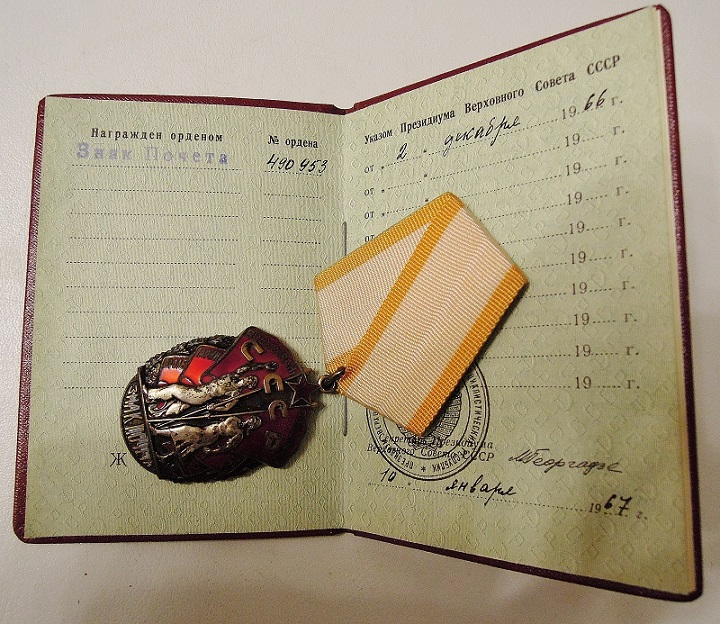 Награжден орденом
№ ордена
Знак Почета
490953
Указом Президиума Верховного Совета СССР
от „ 2 „ декабря 1966 г.
от „ 19 г.
от „ 19 г.
от „ 19 г.
19 г.
19 г.
19 г.
19 г.
19 г.
Секретарь Президиума
Верховного Совета СССР
МГеоргадзе
10 „ января 1967 г.
Ж
СССР